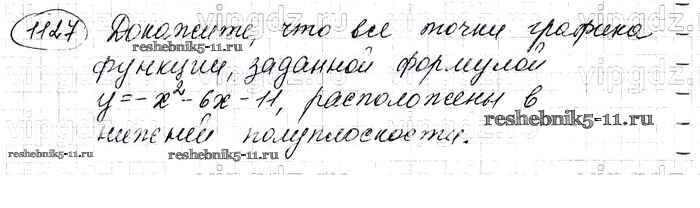 1127 Докажите, что все точки графика
reshebnik5-11.ru
функции, заданной формулой
y=-x²-6x-11, расположены в
reshebnik5-11.ru
нижней полуплоскости.
reshebnik5-11.ru reshebnik5-11.ru